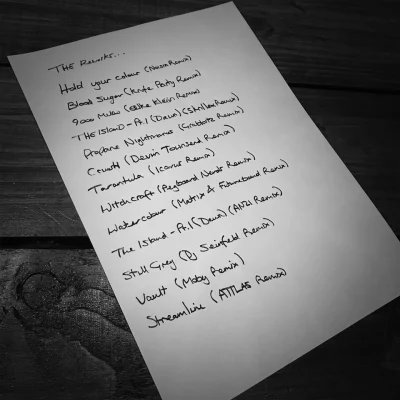 THE Reworks...
Hold your colour (Noisia Remix)
Blood Sugar (Knife Party Remix)
9000 Miles (Blake Klein Remix)
THE ISLAND - Pt.1 (Dawn) (Skrillex Remix)
Propane Nightmares (Grabbitz Remix)
Crush (Devin Townsend Remix)
Tarantula (Icarus Remix)
Witchcraft (Keyboard Nerds Remix)
Watercolour (Matrix & Futurebound Remix)
The Island - Pt.1 (Dawn) (AN21 Remix)
Still Grey (DJ Seinfeld Remix)
Vault (Moby Remix)
Streamline (ATTLAS Remix)